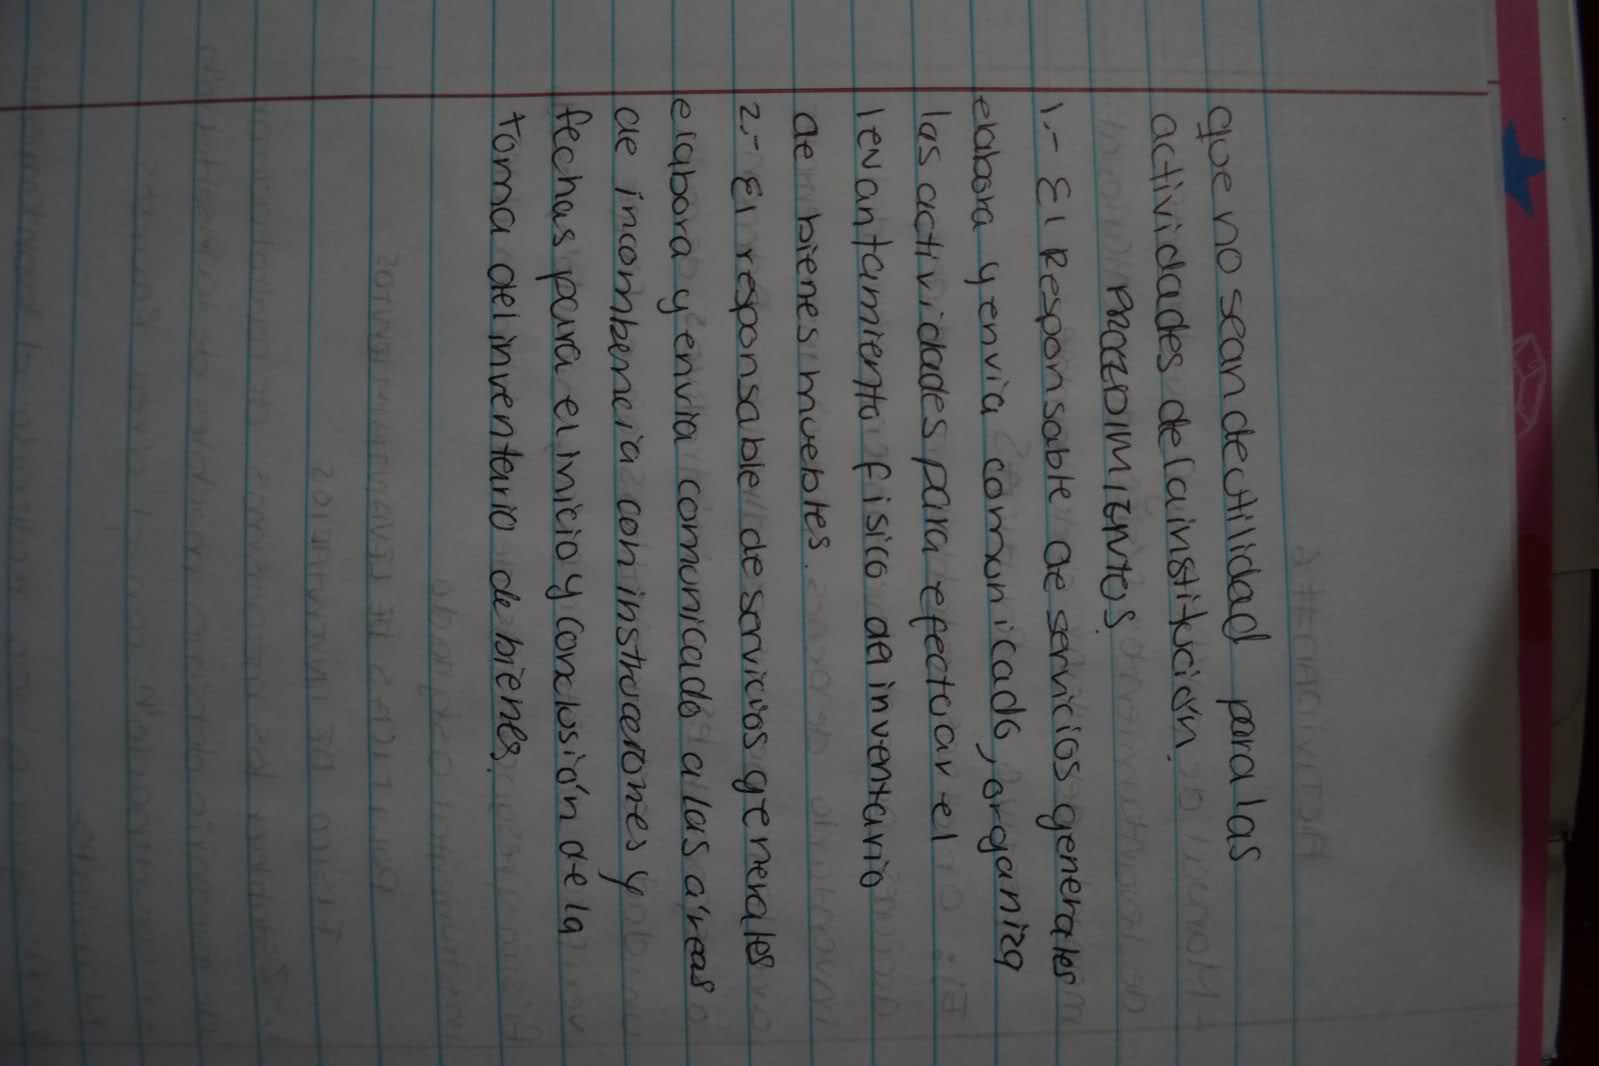 que no sean de utilidad para las
actividades de la institución.
PROCEDIMIENTOS.
1.- El Responsable de servicios generales
elabora y envia comunicado, organiza
las actividades para efectuar el
levantamiento fisico del inventario
de bienes muebles.
2.- El responsable de servicios generales
elabora y envia comunicado a las áreas
de incumbencia con instrucciones y
fechas para el inicio y conclusión de la
toma del inventario de bienes.